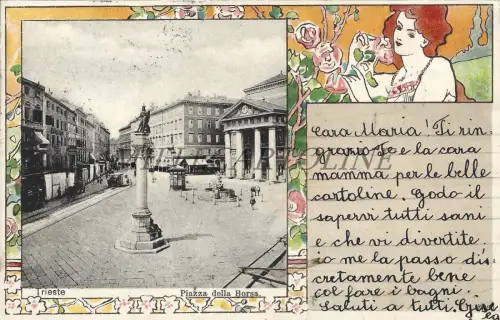 Cara Maria! Ti rin
grazio Te e la cara
mamma per le belle
cartoline. Godo il
sapervi tutti sani
e che vi divertite,
io me la passo dis
cretamente bene
col fare i bagni.
Saluti a tutti.
Trieste
Piazza della Borsa